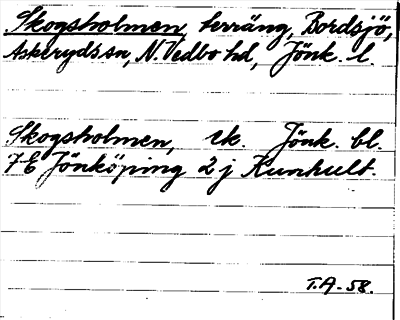 Skogsholmen, terräng, Bordsjö,
Askeryds sn, N. Vedbo hd, Jönk. l.
Skogsholmen, ek. Jönk. bl.
7E Jönköping 2 j Kunhult.
T.A-58.